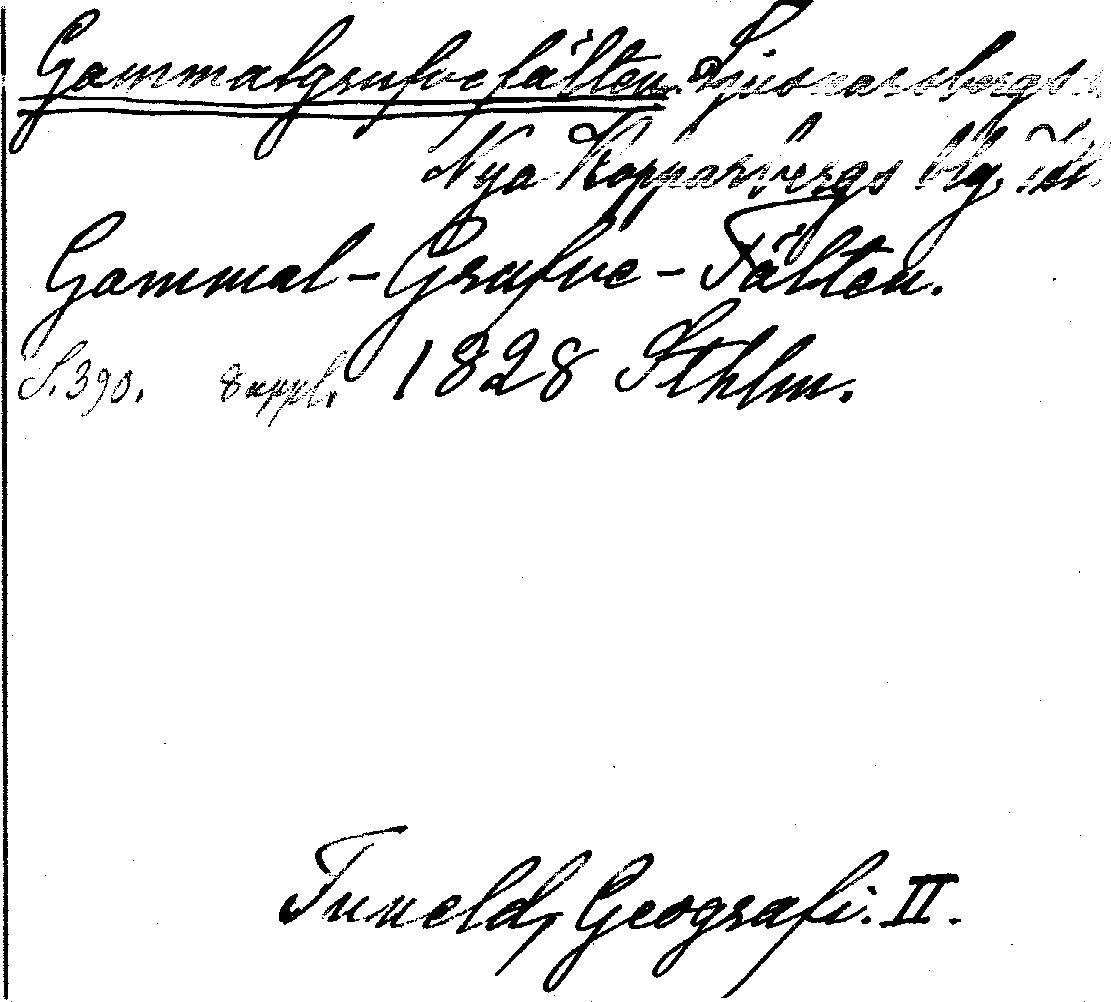 Gammalgrufvefälten. Ljusnarsbergs
Nya Kopparbergs blg.
Gammal-Grufve-Fälten.
S. 390. Suppl. 1828 Sthlm.
Tuneld, Geografi. II.